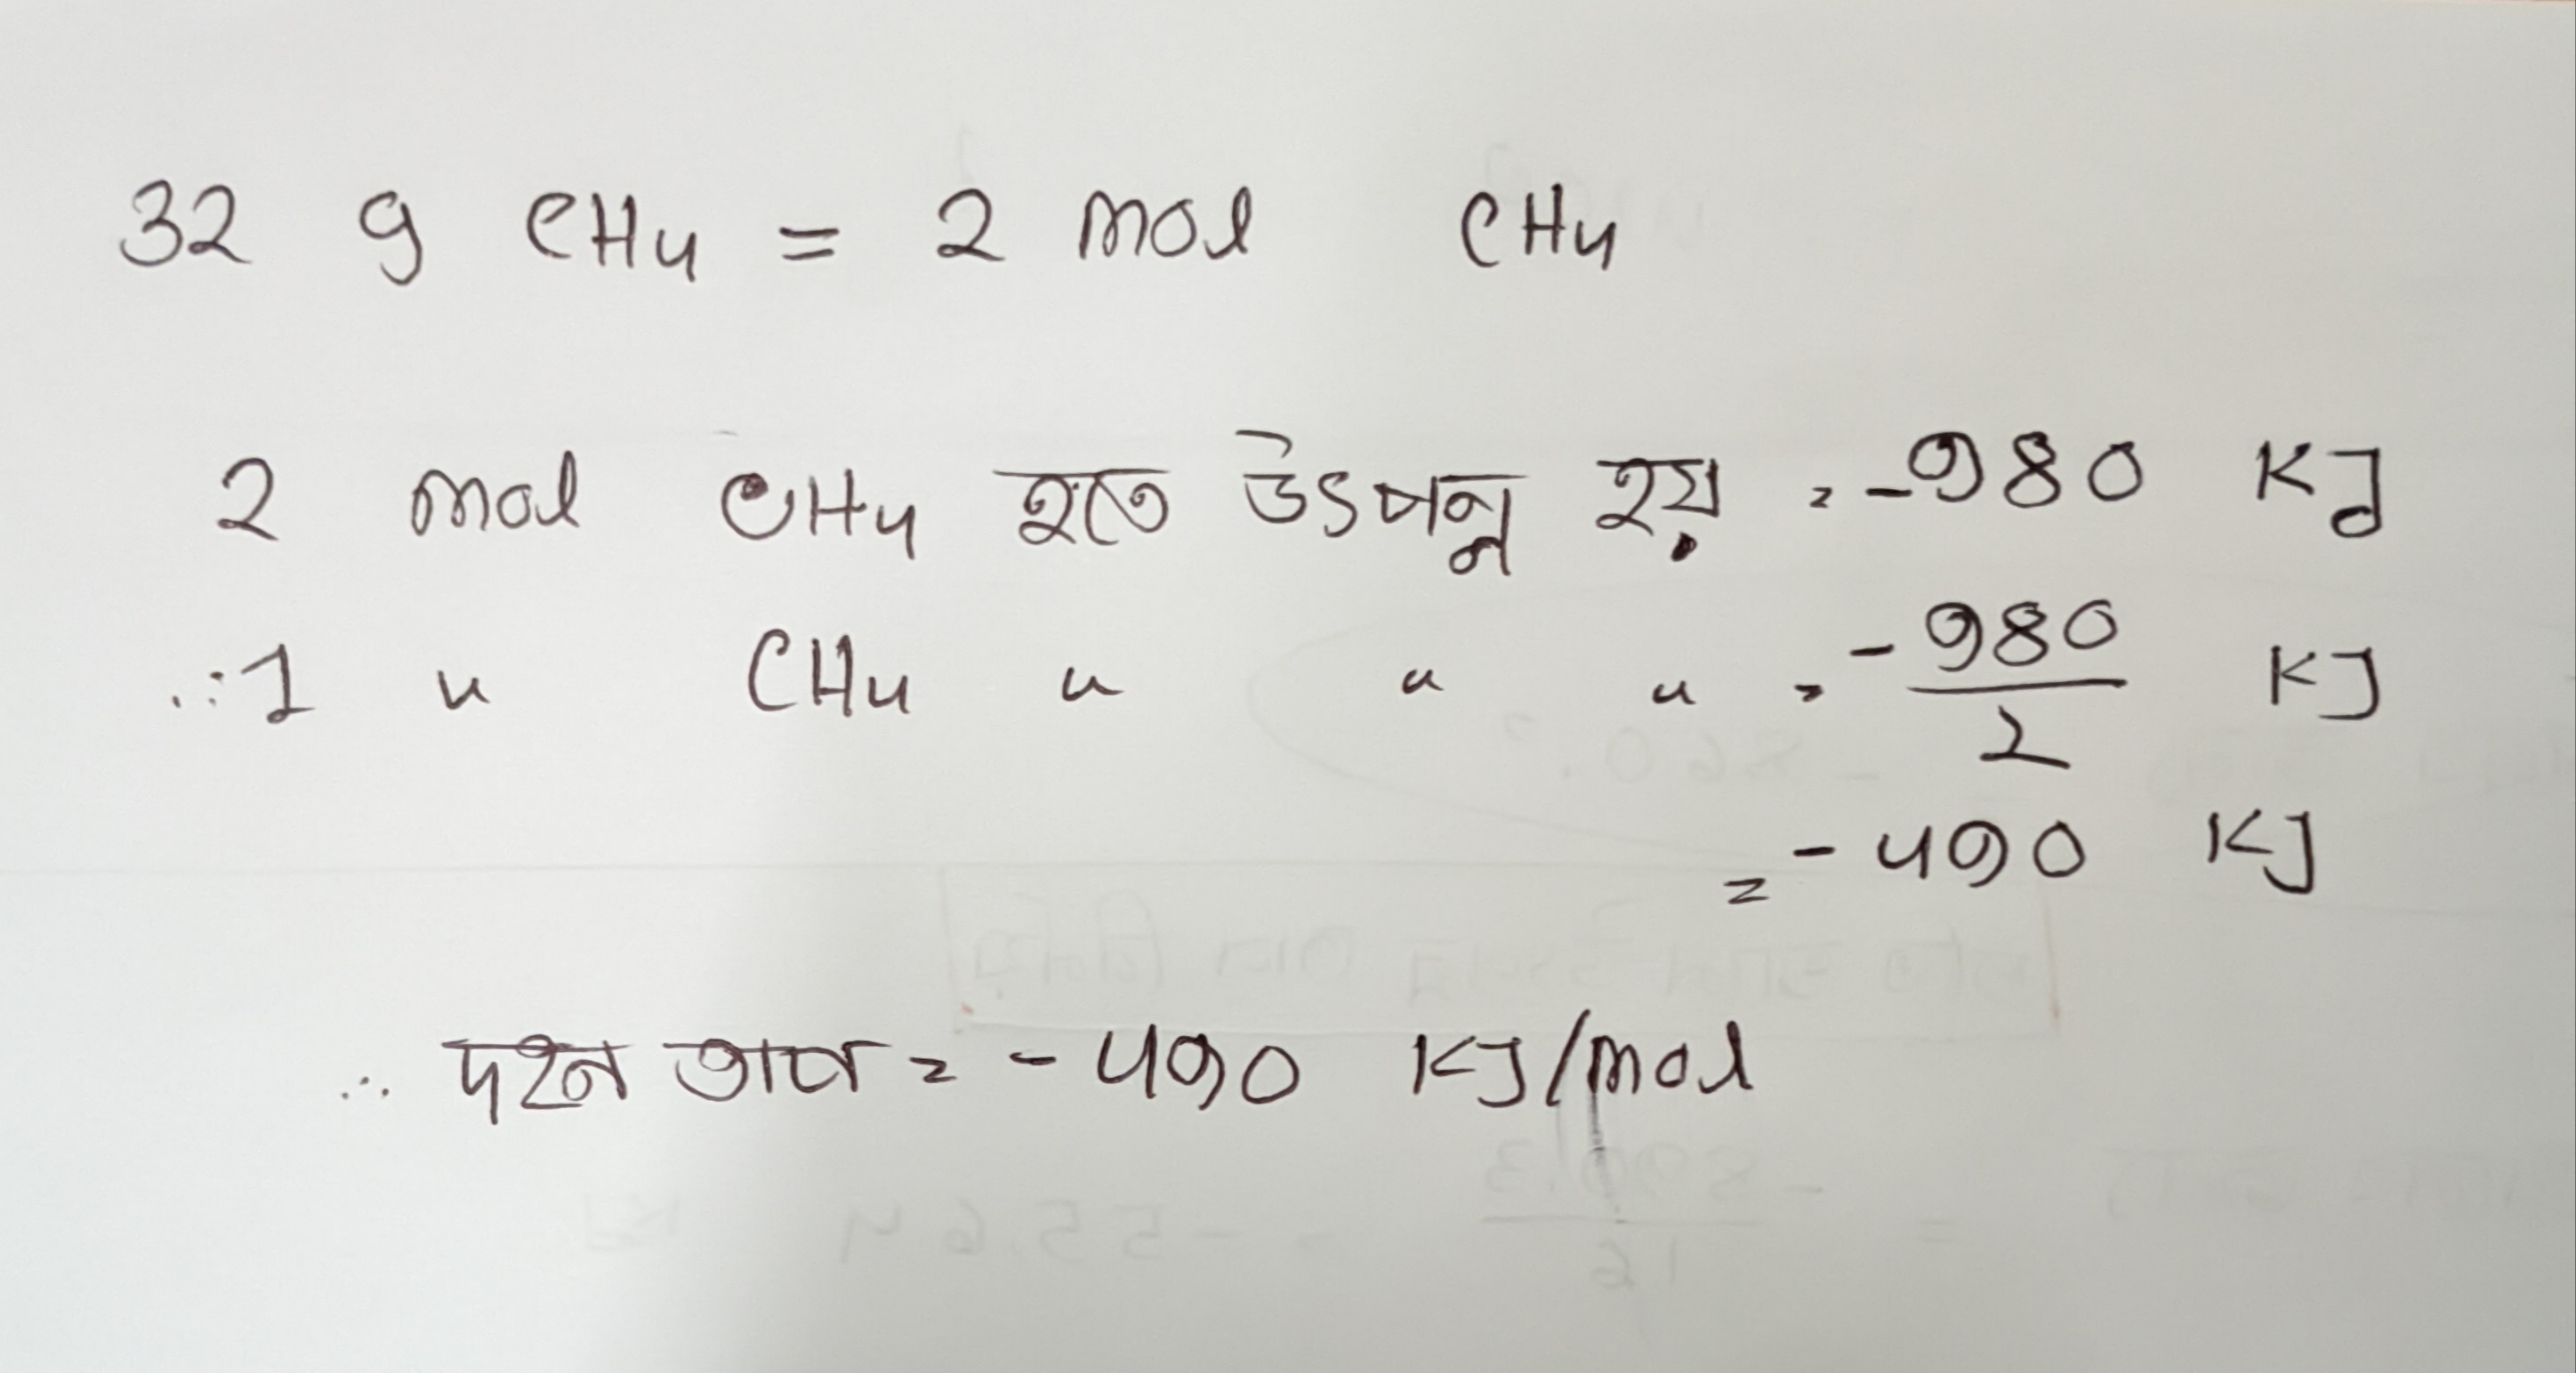 32 g CH4 = 2 mol CH4
2 mol CH4 হতে উৎপন্ন হয় = -980 KJ
∴ 1 " CH4 " " " = -980/2 KJ
= -490 KJ
∴ দহন তাপ = -490 KJ/mol